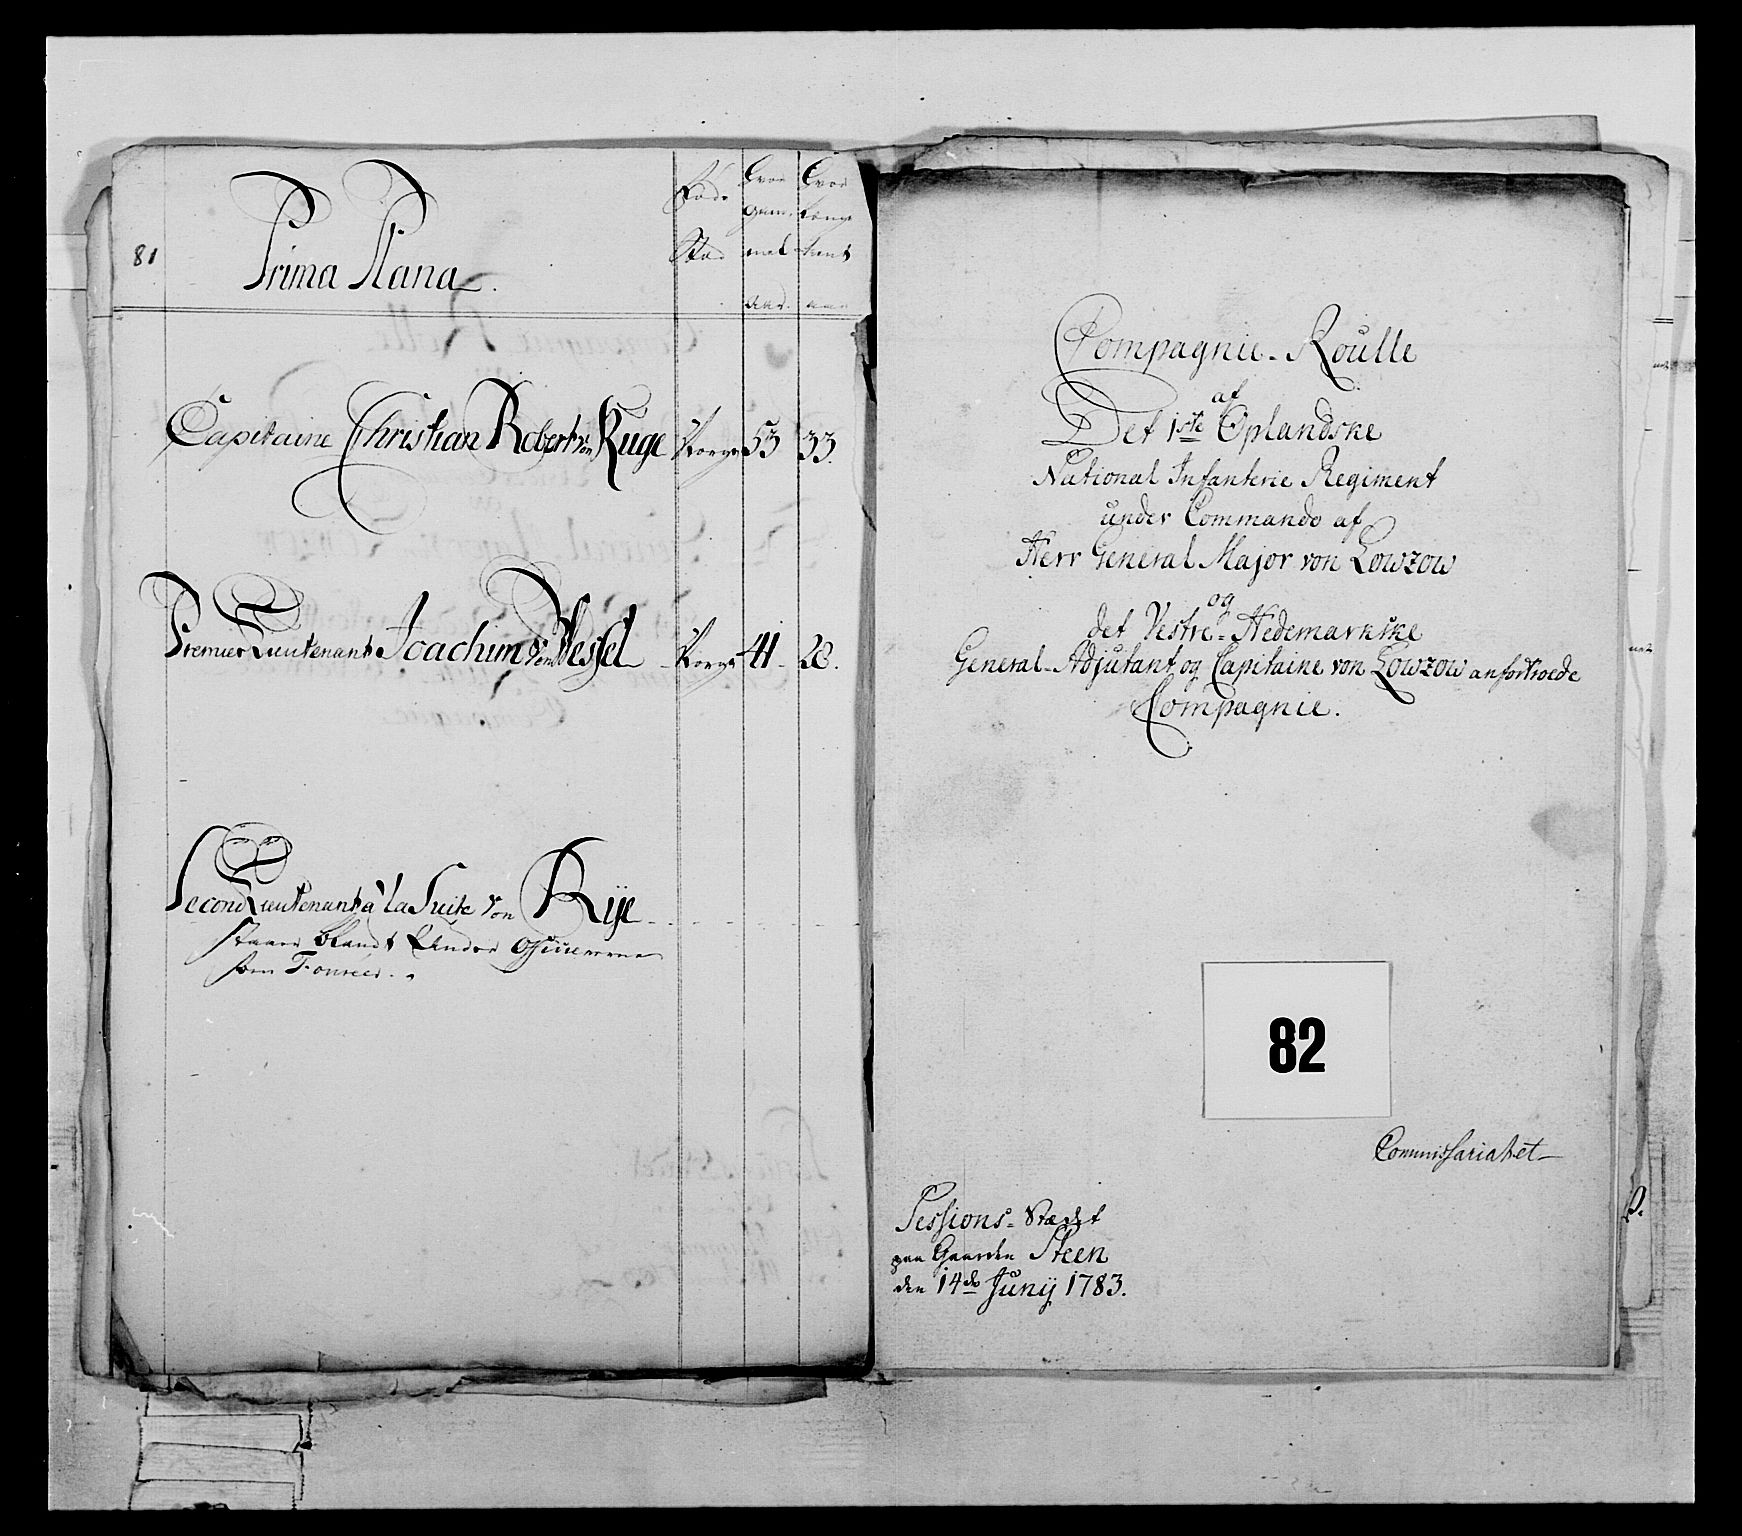 81
Prima Plana.
Føde Stæd
Hvor gammel aar.
Hvor længe tient aar
Capitaine Christian Robert von Ruge Norge 53 33.
Premier Lieutenant Joachim von Wessel Norge 41 28.
Second Lieutenant a la Suite von Rÿe
staaer blandt Under Officererne
som Foureer.
Compagnie-Roulle
af
Det 1ste Oplandske
National Infanterie Regiment
under Commando af
Herr General Major von Lowzow
og
det Vestre-Hedemarkske
General-Adjutant og Capitaine von Lowzow anfortroede
Compagnie.
82
Commissariatet
Sessions-Stædet
paa Gaarden Steen
den 14de Junÿ 1783.